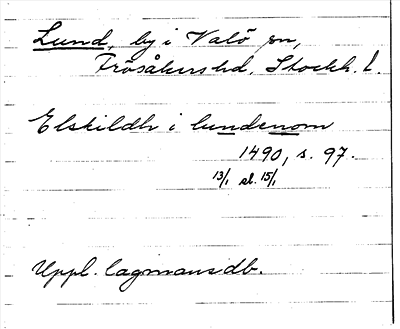 Lund, by i Valö sn,
Frösåkers hd, Stockh. l.
Elskildh i lundenom
1490, s. 97.
13/1 el. 15/1
Uppl. lagmansdb.